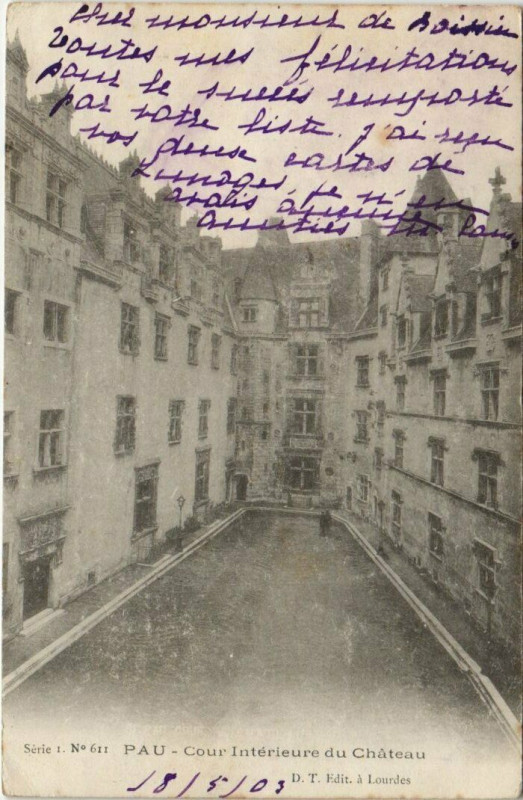 Cher monsieur de Boissin
toutes mes félicitations
pour le succès remporté
par votre liste. J'ai reçu
vos deux cartes de
Limoges, je n'en
avais aucune
amitiés
Série 1. Nº 611 PAU - Cour Intérieure du Château
D. T. Edit. à Lourdes
18/5/03